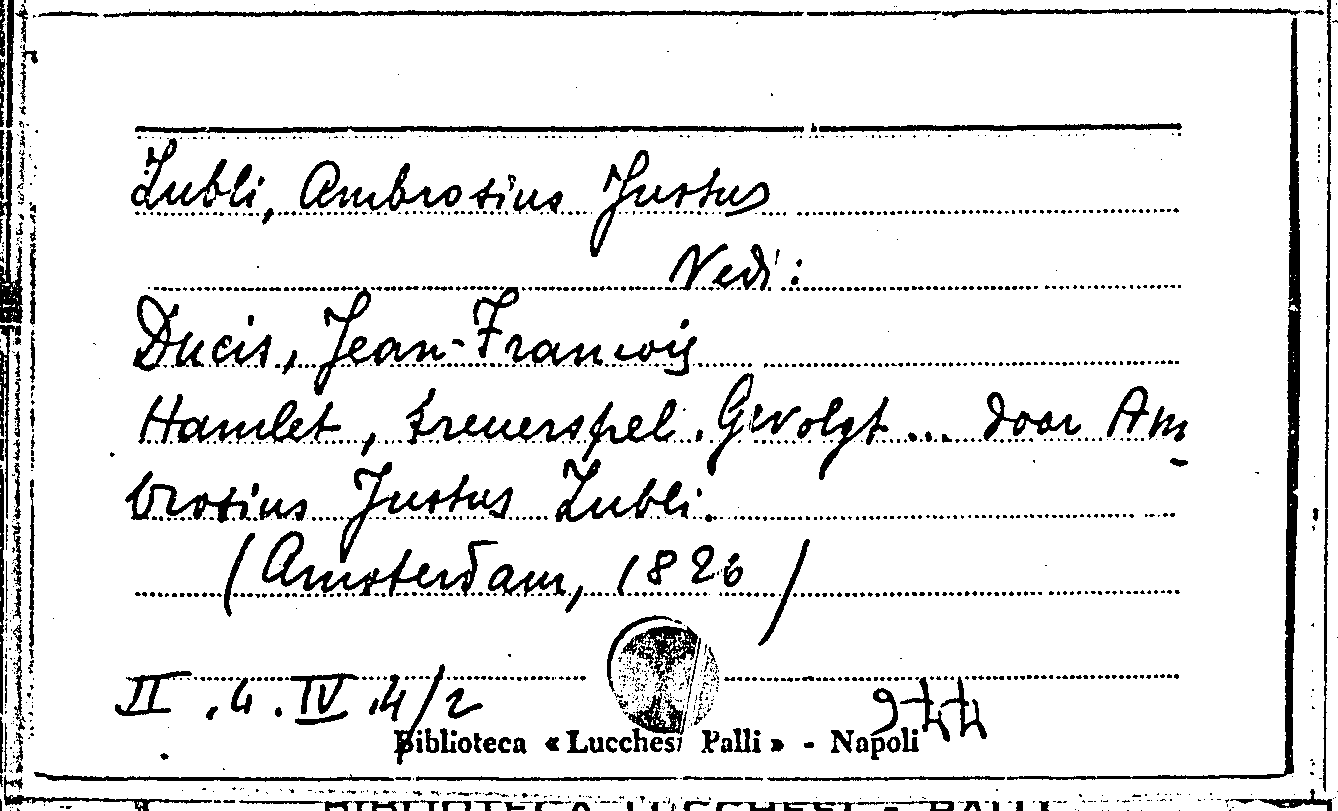 Zubli, Ambrosius Justus
Vedi:
Ducis, Jean-François
Hamlet, treuerspel. Gevolgt... door Am-
brosius Justus Zubli.
(Amsterdam, 1826)
II.4.IV.4/2
Biblioteca «Lucchesi Palli» - Napoli
BIBLIOTECA LUCCHESI - PALLI